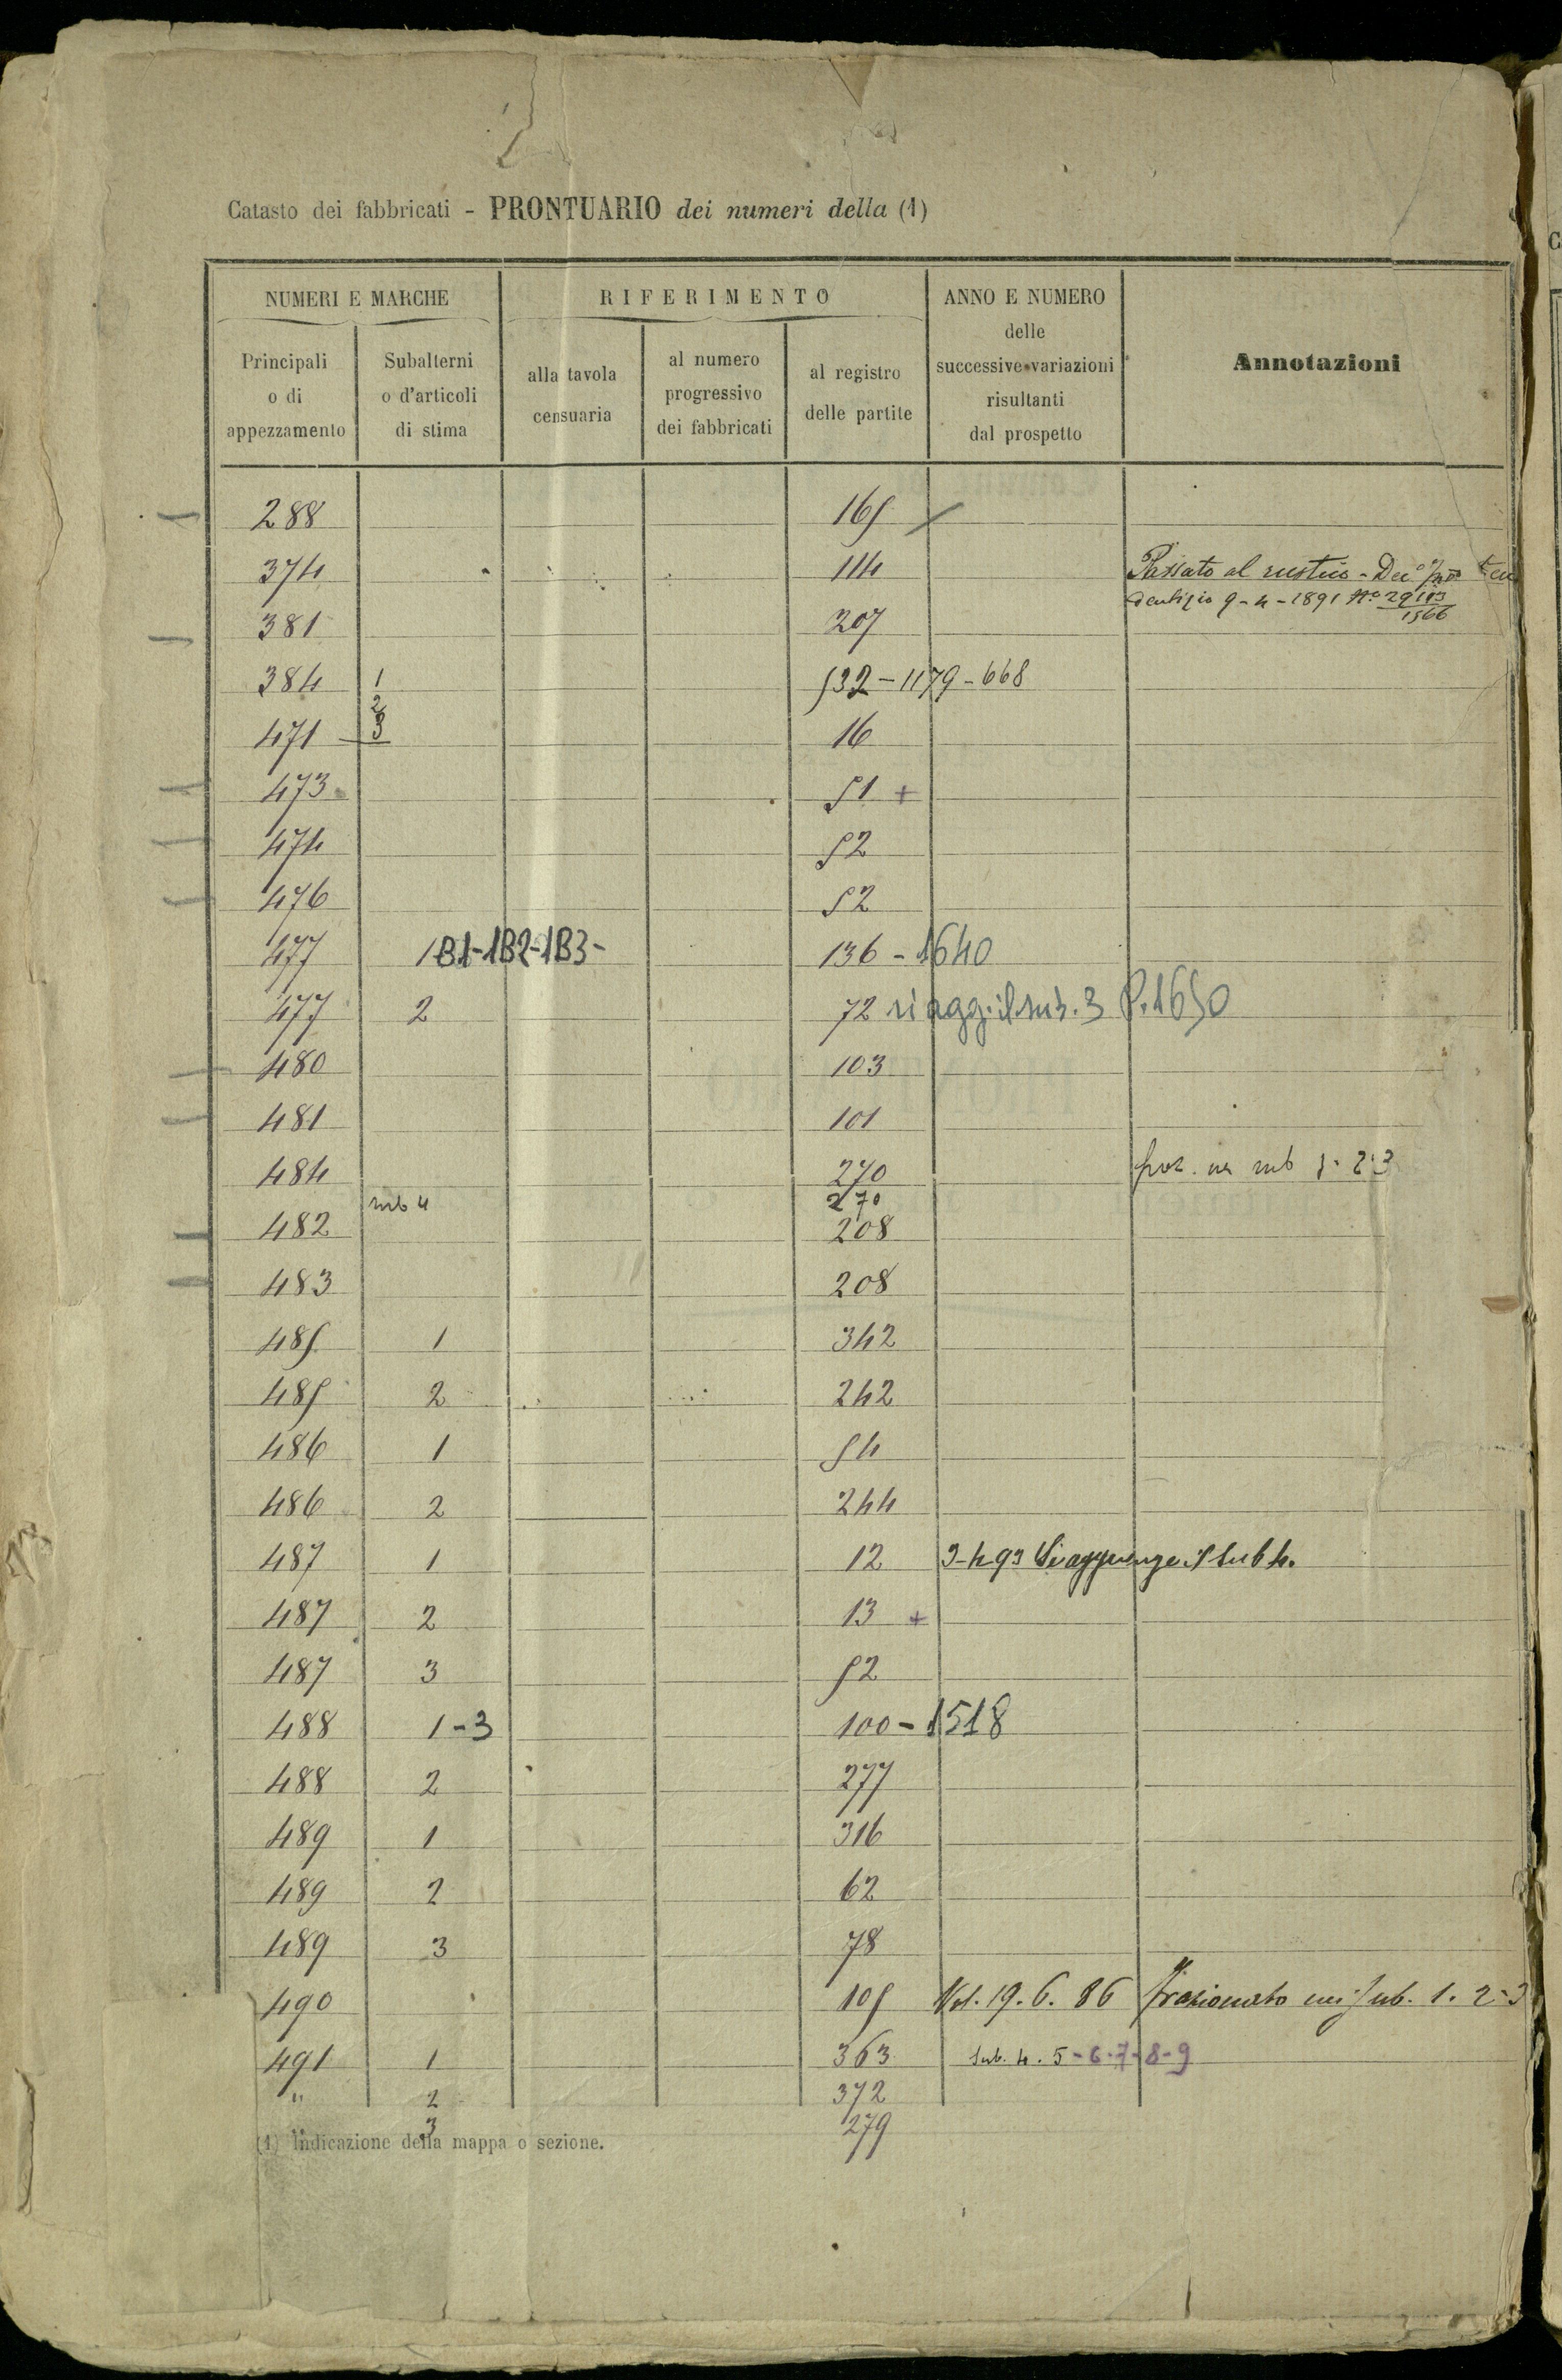 Catasto dei fabbricati - PRONTUARIO dei numeri della (1)
NUMERI E MARCHE RIFERIMENTO ANNO E NUMERO delle successive variazioni risultanti dal prospetto Annotazioni
Principali o di appezzamento Subalterni o d'articoli di stima alla tavola censuaria al numero progressivo dei fabbricati al registro delle partite
288 165
374 114 Passato al rustico -
9-4-1891 No 29103
1566
381 207
384 1 532-1179-668
2
3
471 16
473 51 +
474 52
476 52
477 1B1-1B2-1B3- 136-1640
477 2 72 si agg. il sub. 3 P. 1650
480 103
481 101
484 270 fraz. in sub 1-2-3
sub 4 270
482 208
483 208
485 1 342
485 2 242
486 1 54
486 2 244
487 1 12 3-4-93 Si aggiunge il sub 4.
487 2 13 +
487 3 52
488 1-3 100-1518
488 2 277
489 1 316
489 2 62
489 3 78
490 105 Vol. 19.6.86 frazionato nei sub. 1.2-3
491 1 363 sub. 4.5-6-7-8-9
" 2 372
3 279
(1) Indicazione della mappa o sezione.